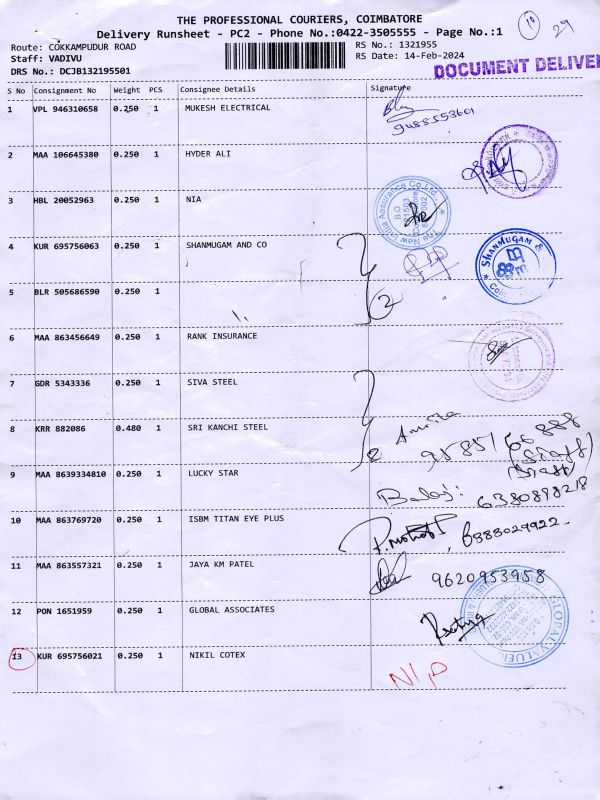 THE PROFESSIONAL COURIERS, COIMBATORE
Delivery Runsheet - PC2 - Phone No.:0422-3505555 - Page No.:1
10 29
Route: COKKAMPUDUR ROAD RS No.: 1321955
Staff: VADIVU RS Date: 14-Feb-2024
DRS No.: DCJB132195501 DOCUMENT DELIVER
S No Consignment No Weight PCS Consignee Details Signature
1 VPL 946310658 0.250 1 MUKESH ELECTRICAL
2 MAA 106645380 0.250 1 HYDER ALI
3 HBL 20052963 0.250 1 NIA The New India Assurance Co. Ltd.
4 KUR 695756063 0.250 1 SHANMUGAM AND CO SHANMUGAM &
5 BLR 505686590 0.250 1 2
6 MAA 863456649 0.250 1 RANK INSURANCE
7 GDR 5343336 0.250 1 SIVA STEEL
8 KRR 882086 0.480 1 SRI KANCHI STEEL 2
9 MAA 8639334810 0.250 1 LUCKY STAR Balaji: 6380898218
10 MAA 863769720 0.250 1 ISBM TITAN EYE PLUS
11 MAA 863557321 0.250 1 JAYA KM PATEL 9620953958
12 PON 1651959 0.250 1 GLOBAL ASSOCIATES
13 KUR 695756021 0.250 1 NIKIL COTEX N/P